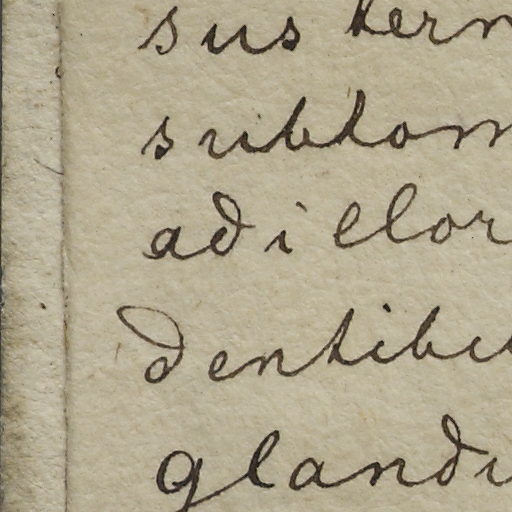 sus tern
subtom
adillor
dentibu
glandi